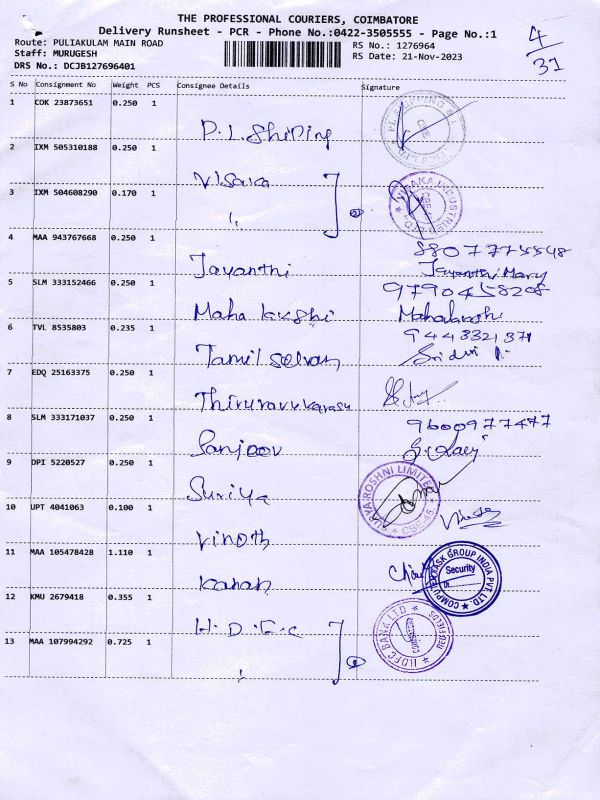 THE PROFESSIONAL COURIERS, COIMBATORE
Delivery Runsheet - PCR - Phone No.:0422-3505555 - Page No.:1
Route: PULIAKULAM MAIN ROAD
Staff: MURUGESH
DRS No.: DCJB127696401
RS No.: 1276964
RS Date: 21-Nov-2023
4/31
S No Consignment No Weight PCS Consignee Details Signature
1 COK 23873651 0.250 1 P.L. Shiping
2 IXM 505310188 0.250 1 Visaka
3 IXM 504608290 0.170 1 "
4 MAA 943767668 0.250 1 Jayanthi Jayanthi Mary
5 SLM 333152466 0.250 1 Maha 9790458208
6 TVL 8535803 0.235 1 Tamil Selvan
7 EDQ 25163375 0.250 1
8 SLM 333171037 0.250 1 Sanjeev 9600977477
9 DPI 5220527 0.250 1 Suriya ROSHNI LIMITED
10 UPT 4041063 0.100 1 Vinoth
11 MAA 105478428 1.110 1 Kanan GROUP INDIA PVT. LTD Security
12 KMU 2679418 0.355 1 H.D.F.C HDFC BANK LTD
13 MAA 107994292 0.725 1 "